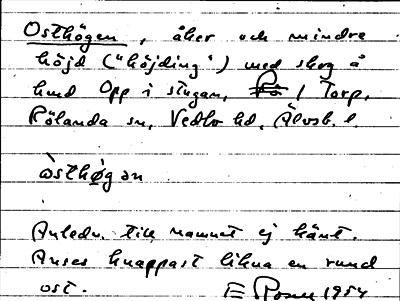 Osthögen, åker och mindre
höjd ("höjding") med skog å
hmd Opp i stugan, /Torp,
Rölanda sn, Vedbo hd, Älvsb. l.
òsthø̀gən
Anledn. till namnet ej känt.
Anses knappast likna en rund
ost. E Rosell 1954